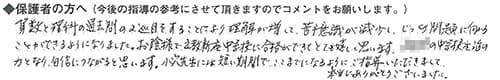 ◆保護者の方へ（今後の指導の参考にさせて頂きますのでコメントをお願いします。）
算数と理科の過去問の2巡目をすることにより理解が増して、苦手意識が減少し、じっくり問題に向かう
ことができるようになりました。お陰様で 中学校に合格ができてとても嬉しく思います。 の中学校生活の
力となり、自信につながると思います。小6生には短い期間でここまでになるようにご指導いただきまして、
本当にありがとうございました。